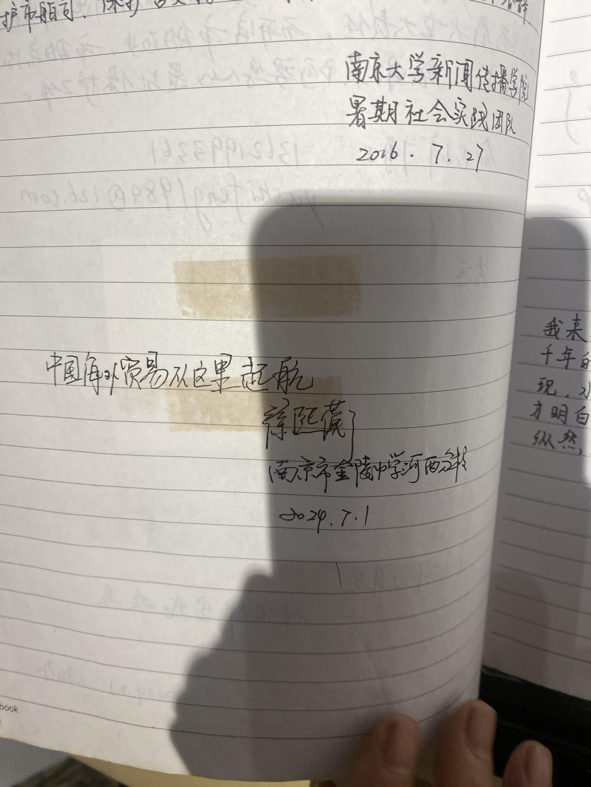 南京大学新闻传播学院
暑期社会实践团队
2016.7.27
中国海外贸易从这里起航
南京市金陵中学河西分校
2024.7.1
我来
千年的
现,
才明白
纵然,
book